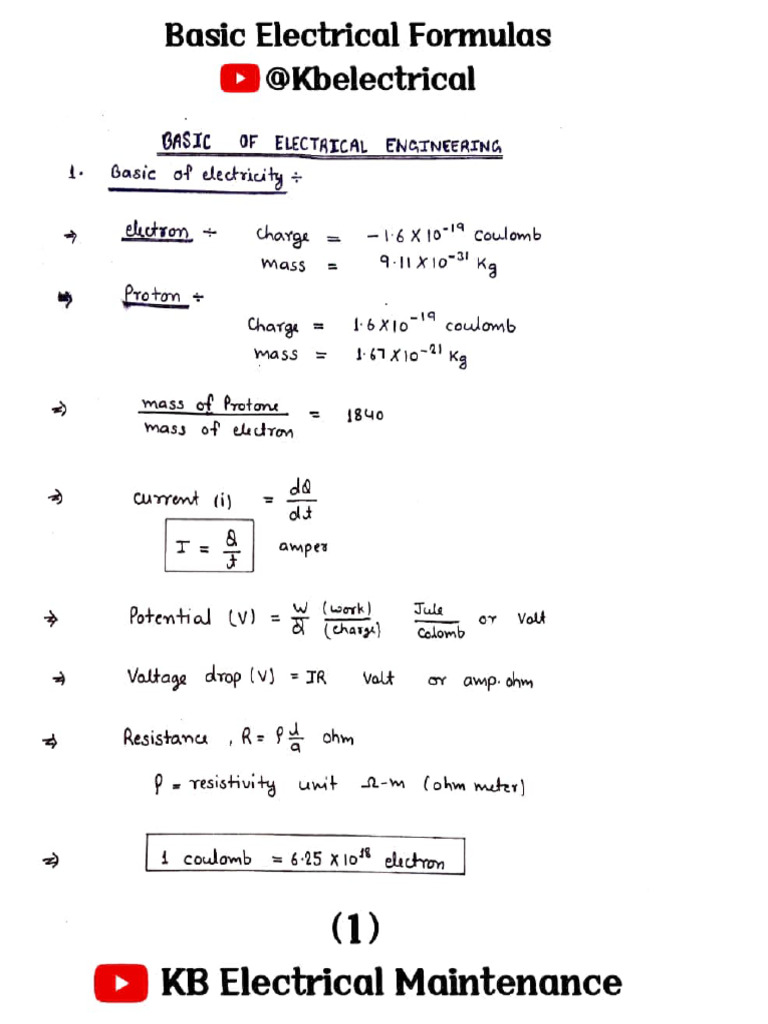 Basic Electrical Formulas
@Kbelectrical
BASIC OF ELECTRICAL ENGINEERING
1. Basic of electricity ÷
⇒ electron ÷ Charge = -1.6 X 10⁻¹⁹ Coulomb
mass = 9.11 X 10⁻³¹ Kg
⇒ Proton ÷
Charge = 1.6X10⁻¹⁹ coulomb
mass = 1.67 X 10⁻²¹ Kg
⇒ mass of Protone / mass of electron = 1840
⇒ current (i) = dQ/dt
I = Q/t amper
⇒ Potential (V) = W/Q (work)/(charge) Jule/Colomb or Volt
⇒ Voltage drop (V) = IR Volt or amp. ohm
⇒ Resistance, R = ρ l/a ohm
ρ = resistivity unit Ω-m (ohm meter)
⇒ 1 coulomb = 6.25 X 10¹⁸ electron
(1)
KB Electrical Maintenance